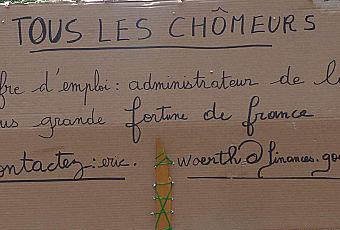 TOUS LES CHÔMEURS
fre d'emploi: administrateur de l
us grande fortune de france
ontactez: eric. woerth@finances.go